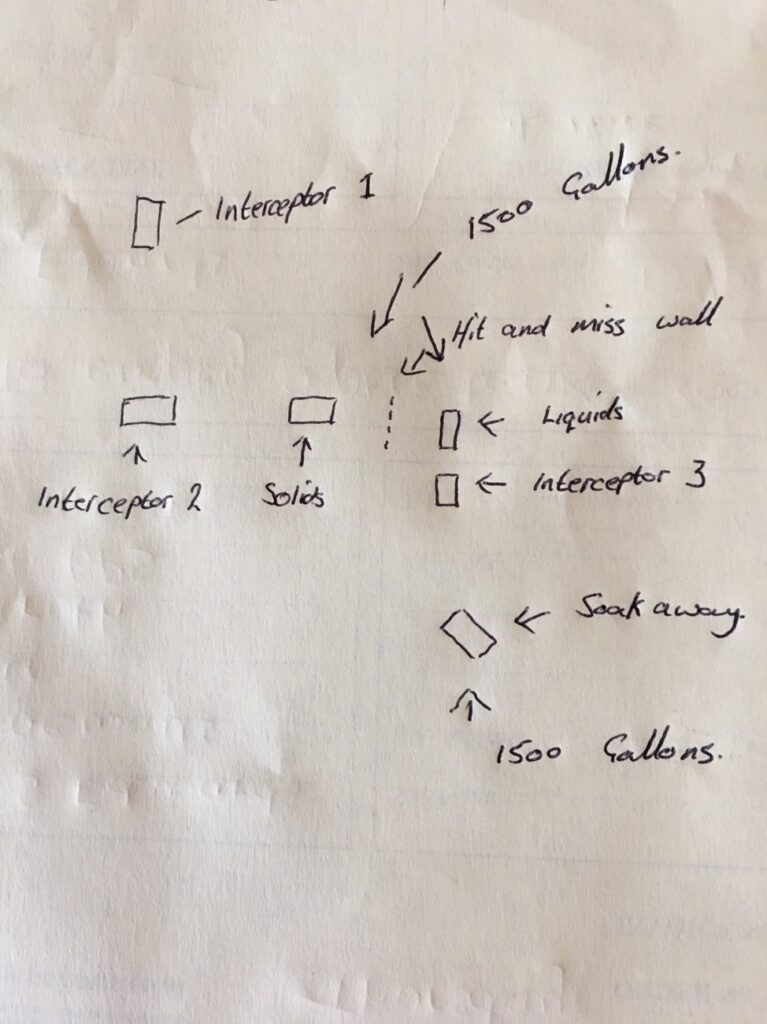 Interceptor 1
1500 Gallons.
Hit and miss wall
Liquids
Interceptor 3
Interceptor 2
Solids
Soak away.
1500 Gallons.